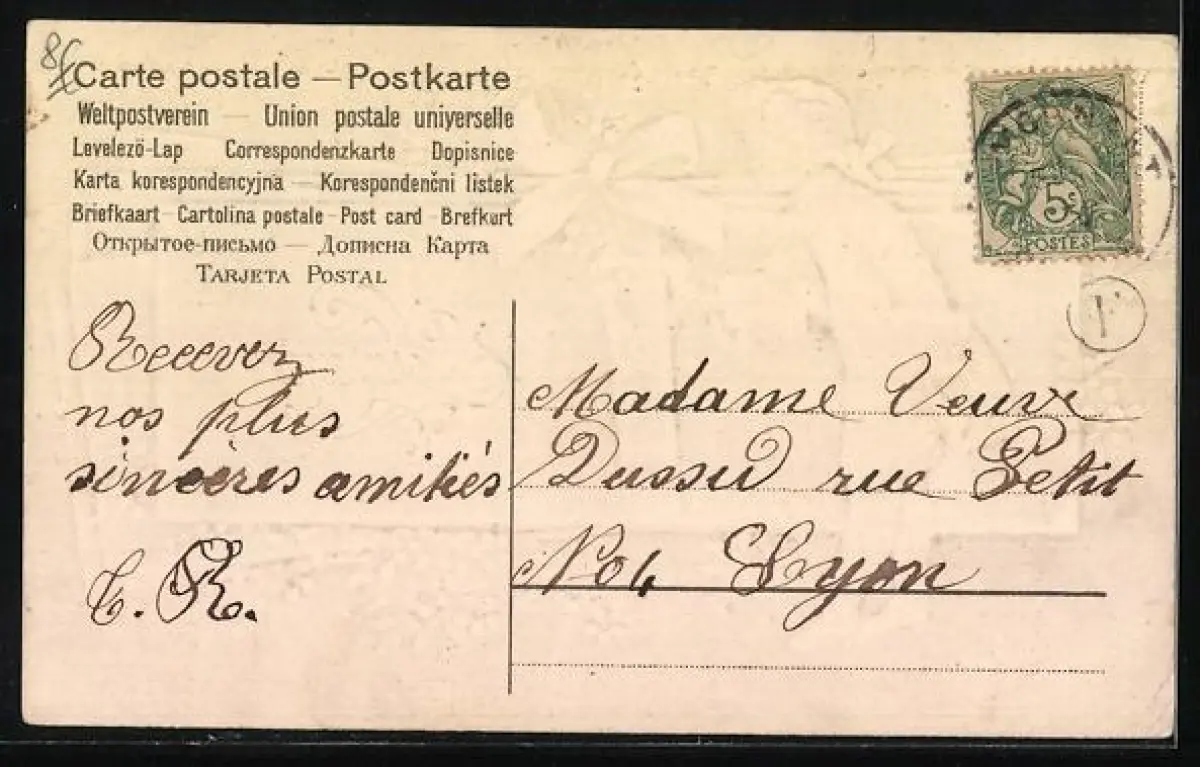 Carte postale — Postkarte
Weltpostverein — Union postale universelle
Levelezö-Lap Correspondenzkarte Dopisnice
Karta korespondencyjna — Korespondenčni listek
Briefkaart - Cartolina postale - Post card - Brefkort
Открытое-письмо — Дописна Карта
Tarjeta Postal
5c
POSTES
Recevez
nos plus
sincères amitiés
R.
Madame Veuve
rue Petit
No 4 Lyon